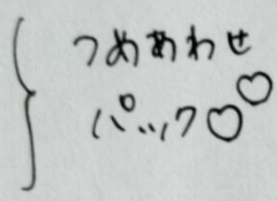 つめあわせ
パック♡♡